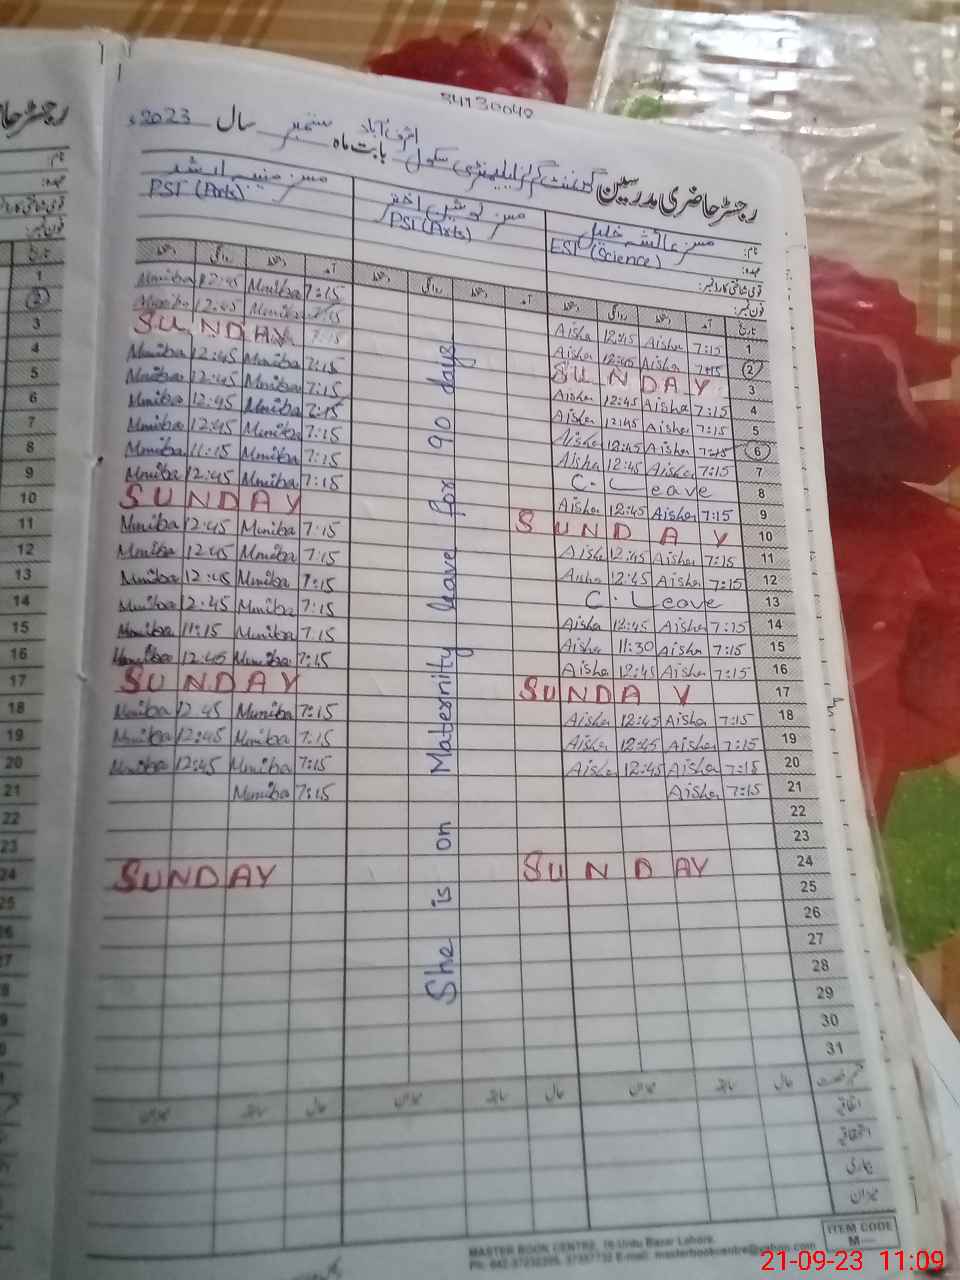 54130040
رجسٹر حاضری مدرسین گورنمنٹ گرلز ایلیمنٹری سکول اشرف آباد بابت ماہ ستمبر سال 2023ء
نام: مس عائشہ خلیل
عہدہ: EST (Science)
قومی شناختی کارڈ نمبر:
فون نمبر:
PST (Arts)
PST (Arts)
تاریخ آمد دستخط روانگی دستخط آمد دستخط روانگی دستخط آمد دستخط روانگی دستخط
1 7:15 Aisha 12:45 Aisha 7:15 Muniba 12:45 Muniba
2 7:15 Aisha 12:45 Aisha 7:15 Muniba 12:45 Muniba
3 SUNDAY 7:15 SUNDAY
4 7:15 Aisha 12:45 Aisha 7:15 Muniba 12:45 Muniba
5 7:15 Aisha 12:45 Aisha 7:15 Muniba 12:45 Muniba
6 7:15 Aisha 12:45 Aisha 7:15 Muniba 12:45 Muniba
7 7:15 Aisha 12:45 Aisha 7:15 Muniba 12:45 Muniba
8 C. Leave 7:15 Muniba 11:15 Muniba
9 7:15 Aisha 12:45 Aisha 7:15 Muniba 12:45 Muniba
10 SUNDAY SUNDAY
11 7:15 Aisha 12:45 Aisha 7:15 Muniba 12:45 Muniba
12 7:15 Aisha 12:45 Aisha 7:15 Muniba 12:45 Muniba
13 C. Leave 7:15 Muniba 12:45 Muniba
14 7:15 Aisha 12:45 Aisha 7:15 Muniba 12:45 Muniba
15 7:15 Aisha 11:30 Aisha 7:15 Muniba 11:15 Muniba
16 7:15 Aisha 12:45 Aisha 7:15 Muniba 12:45 Muniba
17 SUNDAY SUNDAY
18 7:15 Aisha 12:45 Aisha 7:15 Muniba 12:45 Muniba
19 7:15 Aisha 12:45 Aisha 7:15 Muniba 12:45 Muniba
20 7:15 Aisha 12:45 Aisha 7:15 Muniba 12:45 Muniba
21 7:15 Aisha 7:15 Muniba
22
23
24 SUNDAY SUNDAY
25
26
27
28
29
30
31
She is on Maternity leave for 90 days
حال سابقہ میزان حال سابقہ میزان حال سابقہ میزان
اتفاقیہ
استحقاقیہ
بیماری
میزان
ITEM CODE
M—
MASTER BOOK CENTRE, 16-Urdu Bazar Lahore.
E-mail: masterbookcentre@yahoo.com
رجسٹر حاضری
نام:
عہدہ:
فون نمبر:
تاریخ
1
2
3
4
5
6
7
8
9
10
11
12
13
14
15
16
17
18
19
20
21
22
23
24
25
21-09-23 11:09